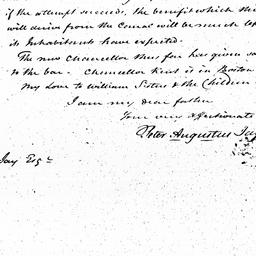 if the attempt succeeds, the benefit which this
will derive from the Canal will be much less
its Inhabitants have expected.
The new Chancellor thus far has given sa
to the bar - Chancellor Kent is in Boston
My Love to William Sisters & the Children
I am my dear father
Your very affectionate
Peter Augustus Jay
Jay Esqr